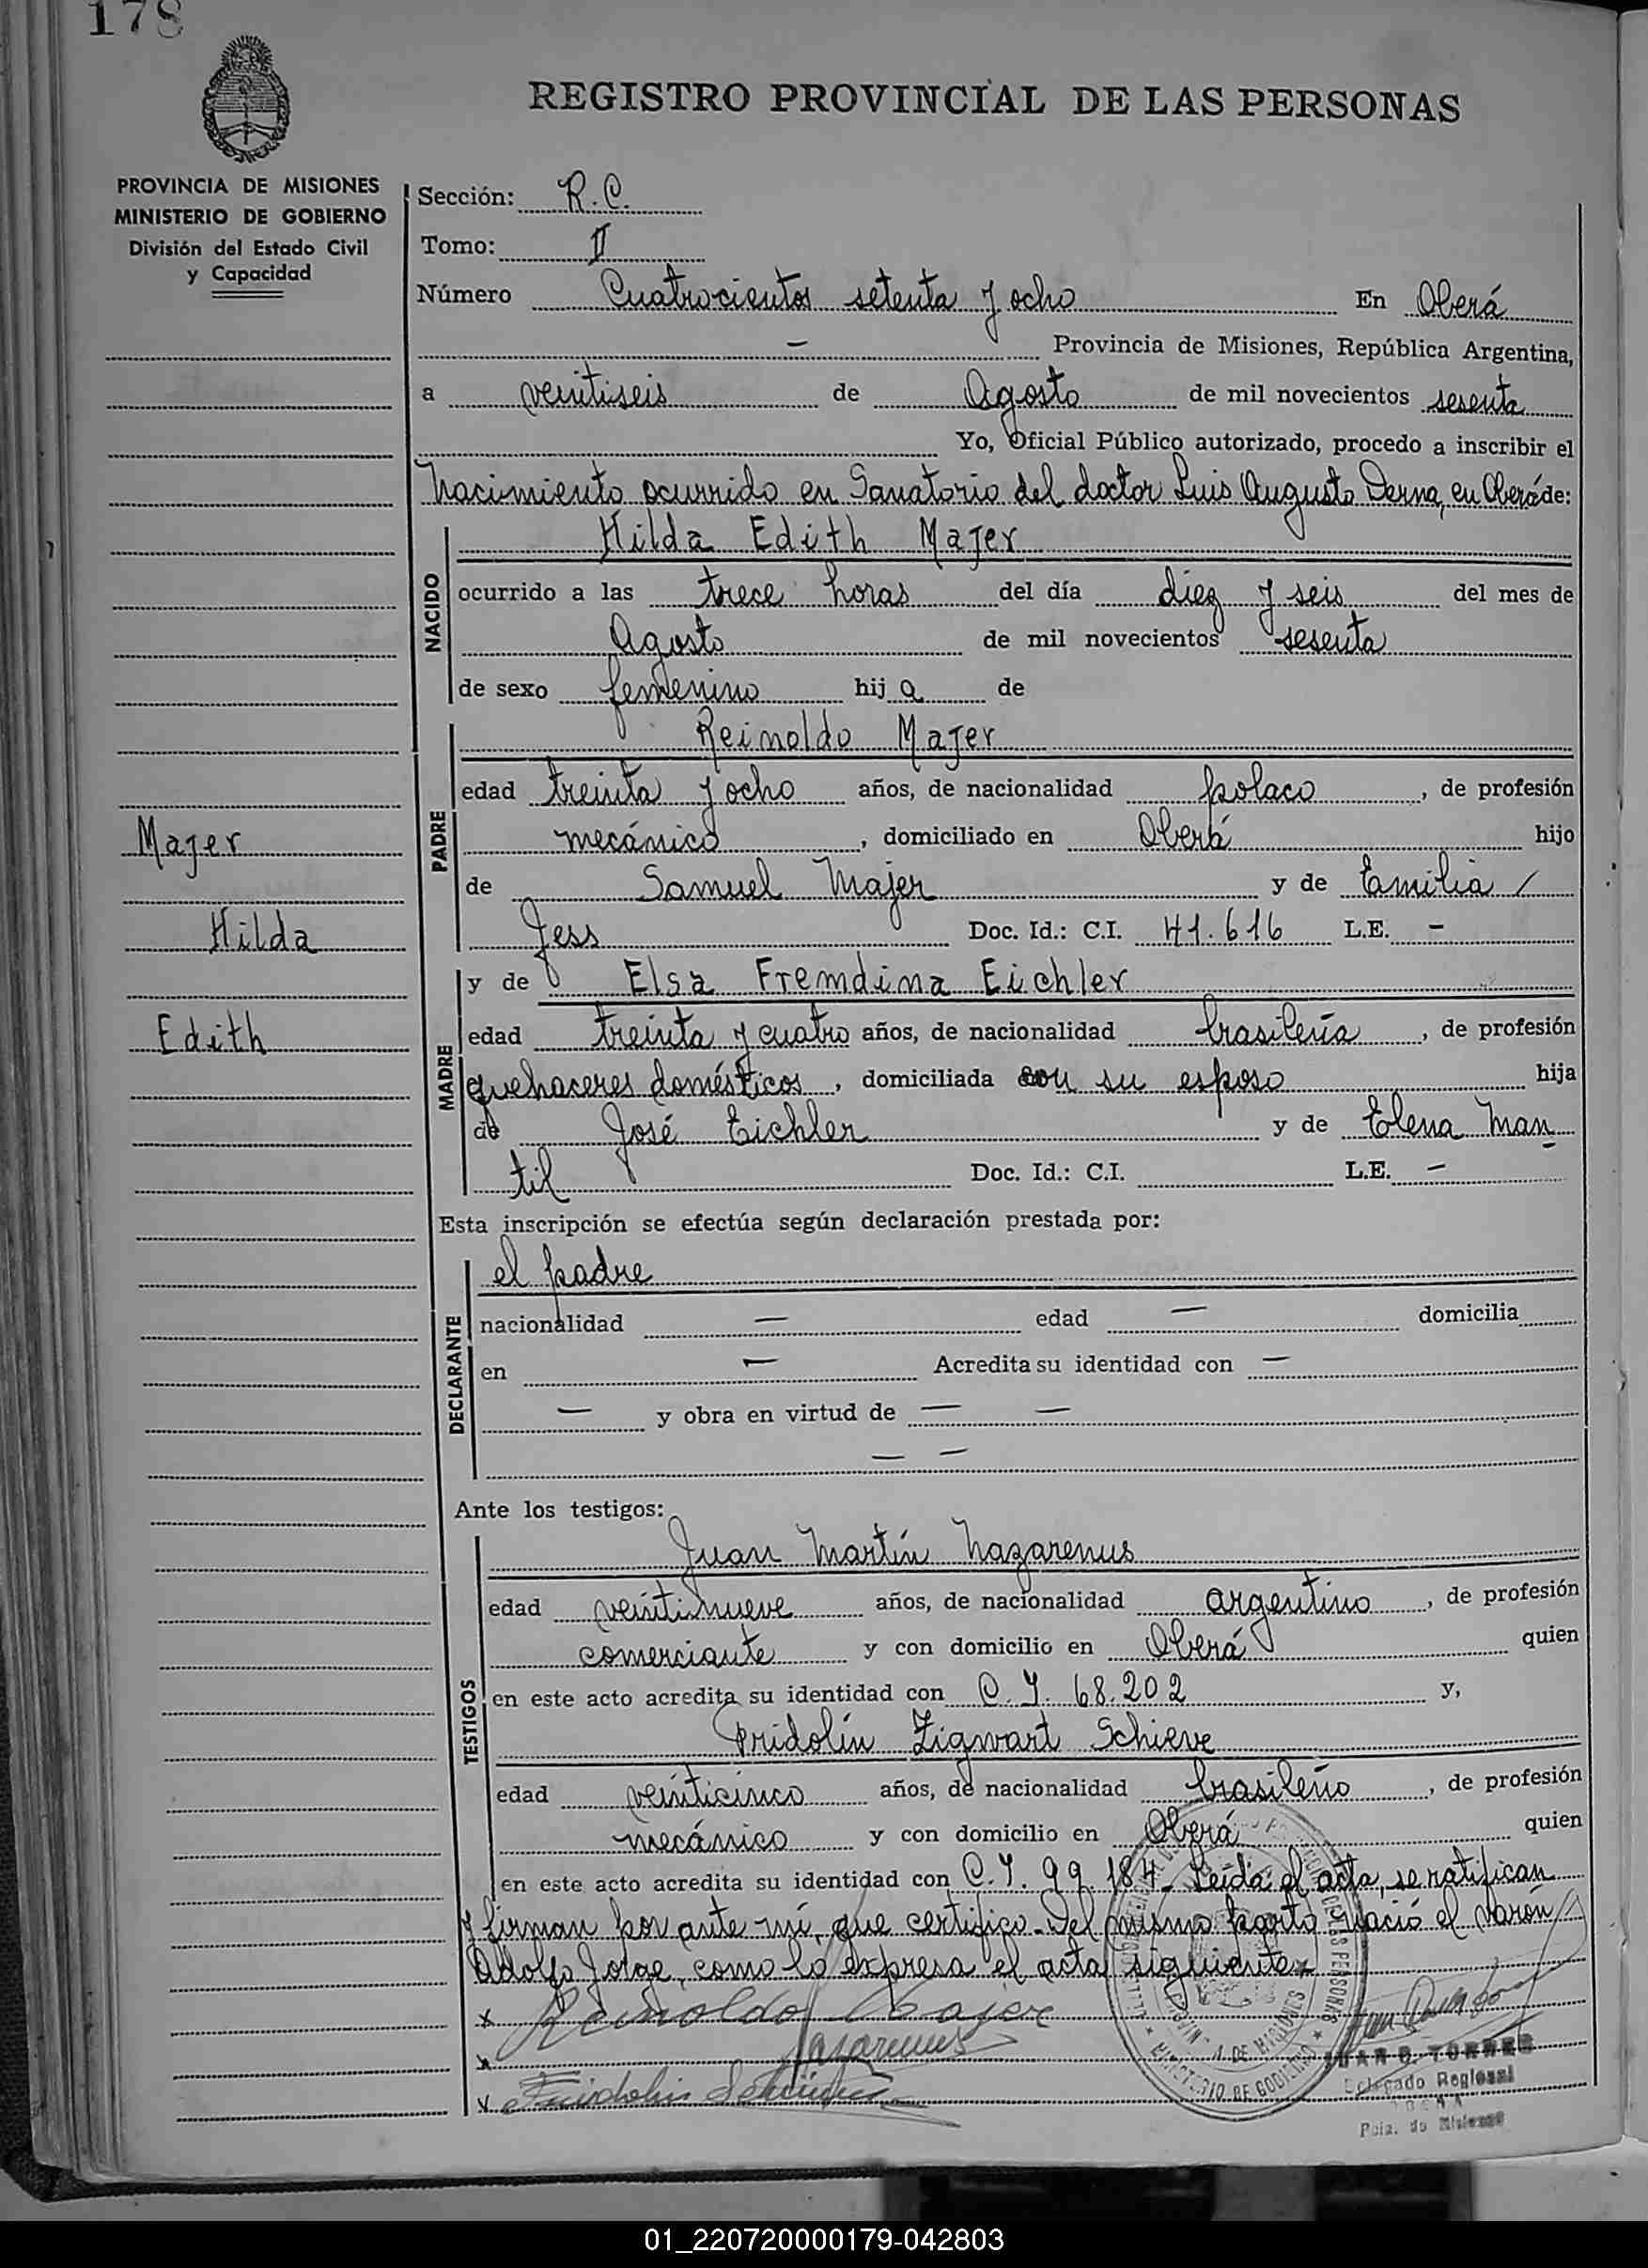 178
REGISTRO PROVINCIAL DE LAS PERSONAS
PROVINCIA DE MISIONES
MINISTERIO DE GOBIERNO
División del Estado Civil
y Capacidad
Sección: R.C.
Tomo: II
Número Cuatrocientos setenta y ocho En Oberá
— Provincia de Misiones, República Argentina,
a veintiseis de Agosto de mil novecientos sesenta
Yo, Oficial Público autorizado, procedo a inscribir el
nacimiento ocurrido en Sanatorio del doctor Luis Augusto Derna, en Oberá de:
NACIDO
Hilda Edith Majer
ocurrido a las trece horas del día diez y seis del mes de
Agosto de mil novecientos sesenta
de sexo femenino hija de
PADRE
Reinoldo Majer
edad treinta y ocho años, de nacionalidad polaco, de profesión
mecánico, domiciliado en Oberá hijo
de Samuel Majer y de Emilia /
Jess Doc. Id.: C.I. 41.616 L.E. —
Majer
Hilda
Edith
MADRE
y de Elsa Fremdina Eichler
edad treinta y cuatro años, de nacionalidad brasileña, de profesión
quehaceres domésticos, domiciliada con su esposo hija
de José Eichler y de Elena Man
til Doc. Id.: C.I. L.E. —
Esta inscripción se efectúa según declaración prestada por:
DECLARANTE
el padre
nacionalidad — edad — domicilia
en — Acredita su identidad con —
— y obra en virtud de — —
— —
Ante los testigos:
TESTIGOS
Juan Martín Nazarenus
edad veintinueve años, de nacionalidad argentino, de profesión
comerciante y con domicilio en Oberá quien
en este acto acredita su identidad con C.I. 68.202 y,
Fridolín Zigwart Schieve
edad veinticinco años, de nacionalidad brasileño, de profesión
mecánico y con domicilio en Oberá quien
en este acto acredita su identidad con C.I. 99.184. Leída el acta, se ratifican
y firman por ante mí, que certifico. Del mismo parto nació el varón
Adolfo Jorge, como lo expresa el acta siguiente.
x Reinoldo Majer
x Nazarenus
x Fridolin
JUAN TORRES
Delegado Regional
OBERA
Pcia. de Misiones
MINISTERIO DE GOBIERNO
DE LAS PERSONAS
DE MISIONES
01_220720000179-042803